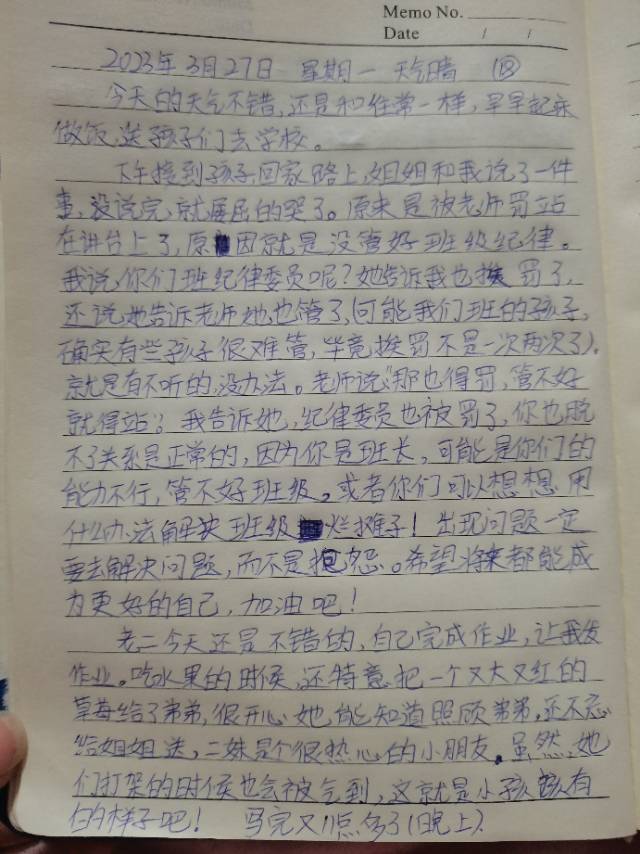 Memo No.
Date / /
2023年3月27日 星期一 天气晴
今天的天气不错,还是和往常一样,早早起来
做饭,送孩子们去学校。
下午接到孩子,回家路上,姐姐和我说了一件
事,没说完,就屈的哭了。原来是被老师罚站
在讲台上了,原因就是没管好班级纪律。
我说,你们班纪律委员呢?她告诉我也挨罚了,
还说她告诉老师她也管了,(可能我们班的孩子,
确实有些孩子很难管,毕竟挨罚不是一次两次了),
就是有不听的,没办法。老师说:“那也得罚,管不好
就得站”;我告诉她,纪律委员也被罚了,你也脱
不了关系是正常的,因为你是班长,可能是你们的
能力不行,管不好班级。或者你们可以想想,用
什么办法解决班级烂摊子!出现问题一定
要去解决问题,而不是抱怨。希望将来都能成
为更好的自己,加油吧!
老二今天还是不错的,自己完成作业,让我发
作业。吃水果的时候,还特意把一个又大又红的
草莓给了弟弟,很开心她能知道照顾弟弟,还不忘
给姐姐送,二妹是个很热心的小朋友。虽然,她
们打架的时候也会被气到,这就是小孩该有
的样子吧! 写完又多了(晚上)